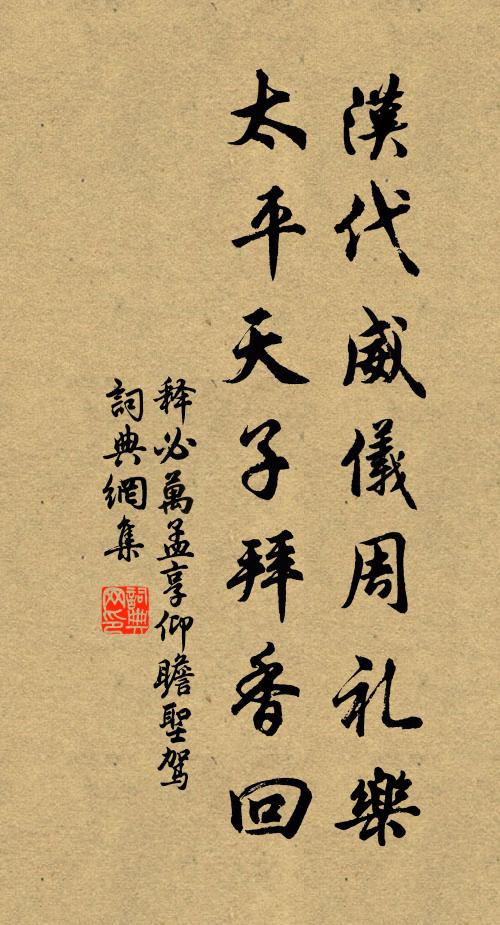 漢代威儀周礼樂
太平天子拜香回
释必萬孟享仰瞻聖駕
詞典網集
詞典网印